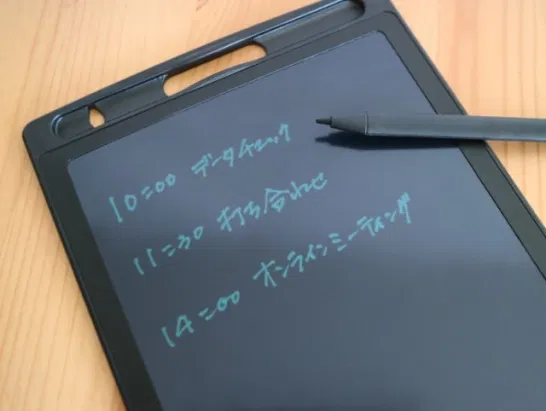 10:00 データチェック
11:30 打ち合わせ
14:00 オンラインミーティング